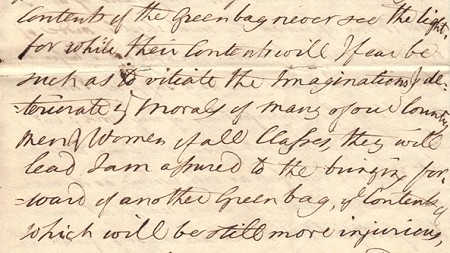 Contents of the Green bag never see the light,
for while their Contents will I fear be
such as to vitiate the Imaginations & de-
=teriorate ye Morals of many of our Country
men & Women of all Classes, they will
lead I am assured to the bringing for-
=ward of another Green bag, ye Contents of
which will be still more injurious,